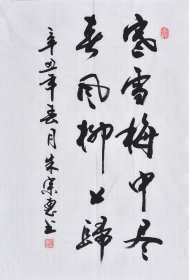 寒雪梅中尽
春风柳上归
辛丑年春月朱宗惠书